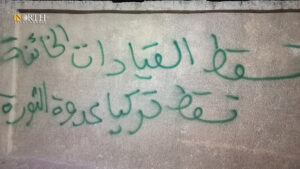 NORTH
تسقط القيادات الخائنة
تسقط تركيا عدوة الثورة